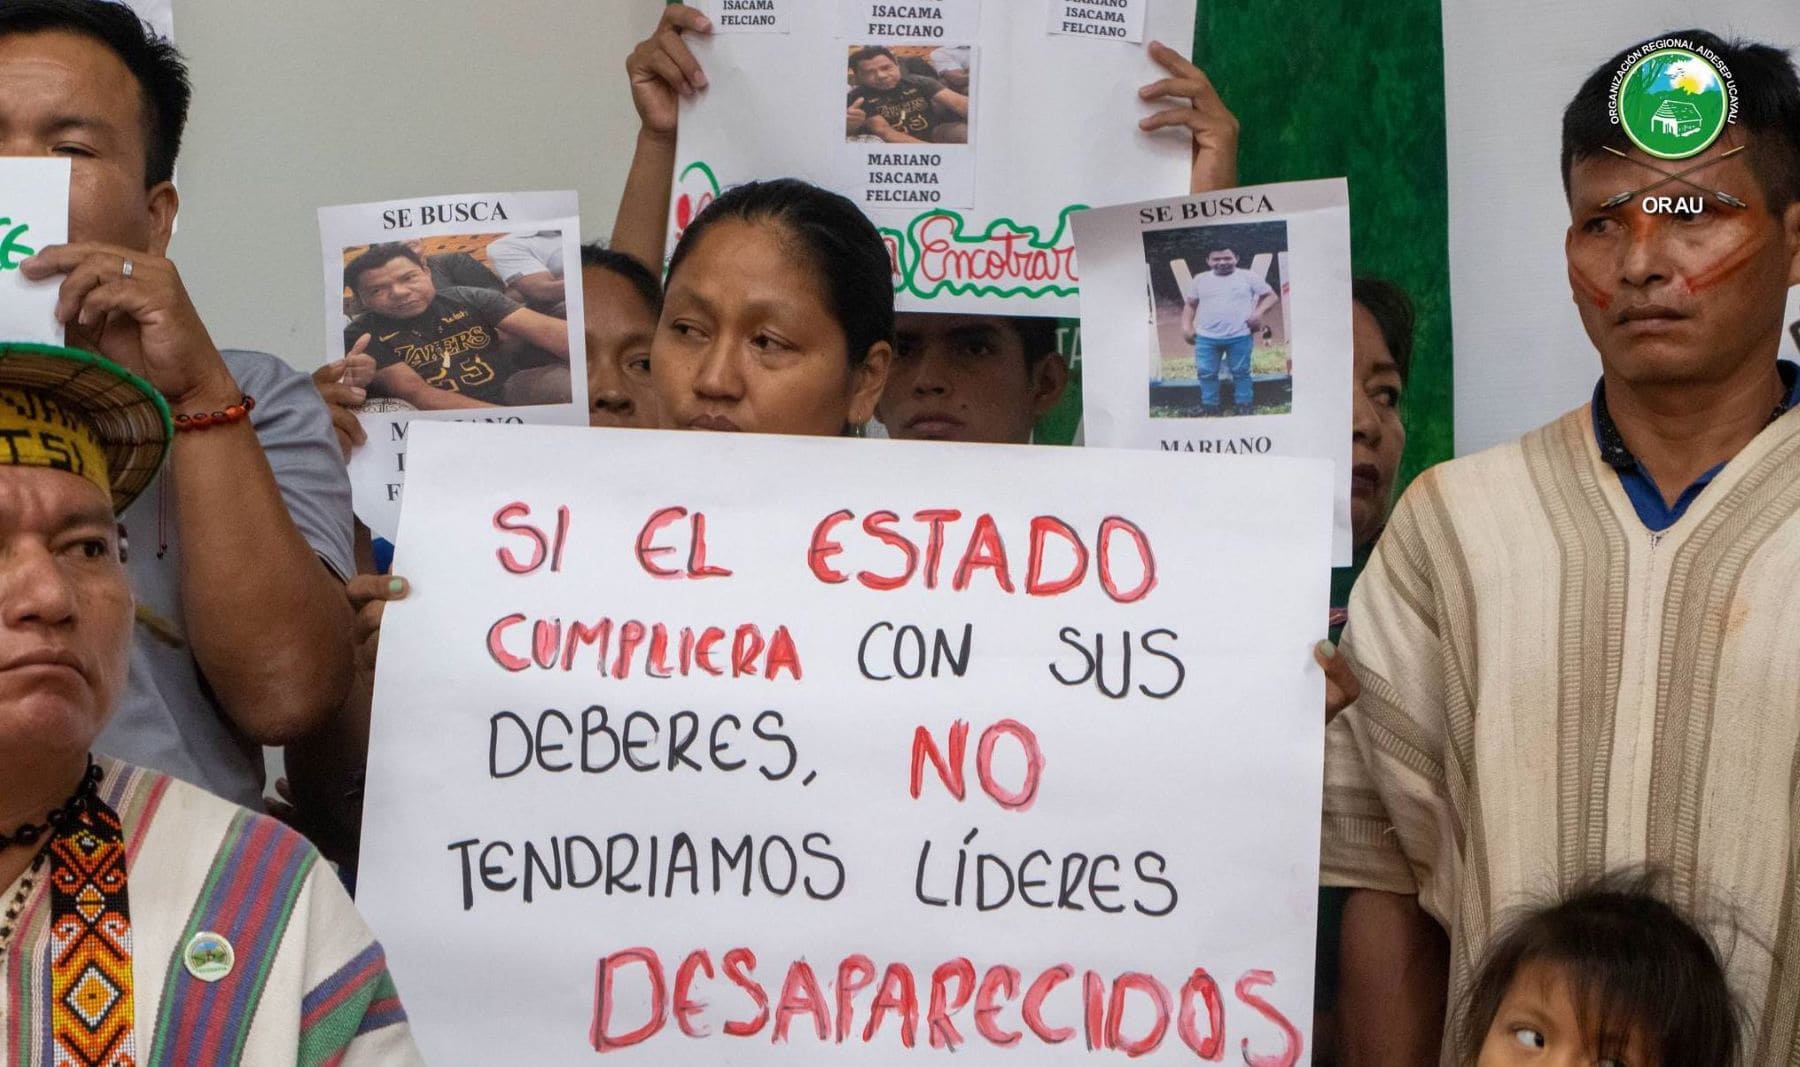 ISACAMA
FELCIANO
ISACAMA
FELCIANO
MARIANO
ISACAMA
FELCIANO
MARIANO
ISACAMA
FELCIANO
Encotrar
SE BUSCA
LAKERS
SE BUSCA
MARIANO
SI EL ESTADO
CUMPLIERA CON SUS
DEBERES, NO
TENDRIAMOS LÍDERES
DESAPARECIDOS
ORGANIZACIÓN REGIONAL AIDESEP UCAYALI
ORAU